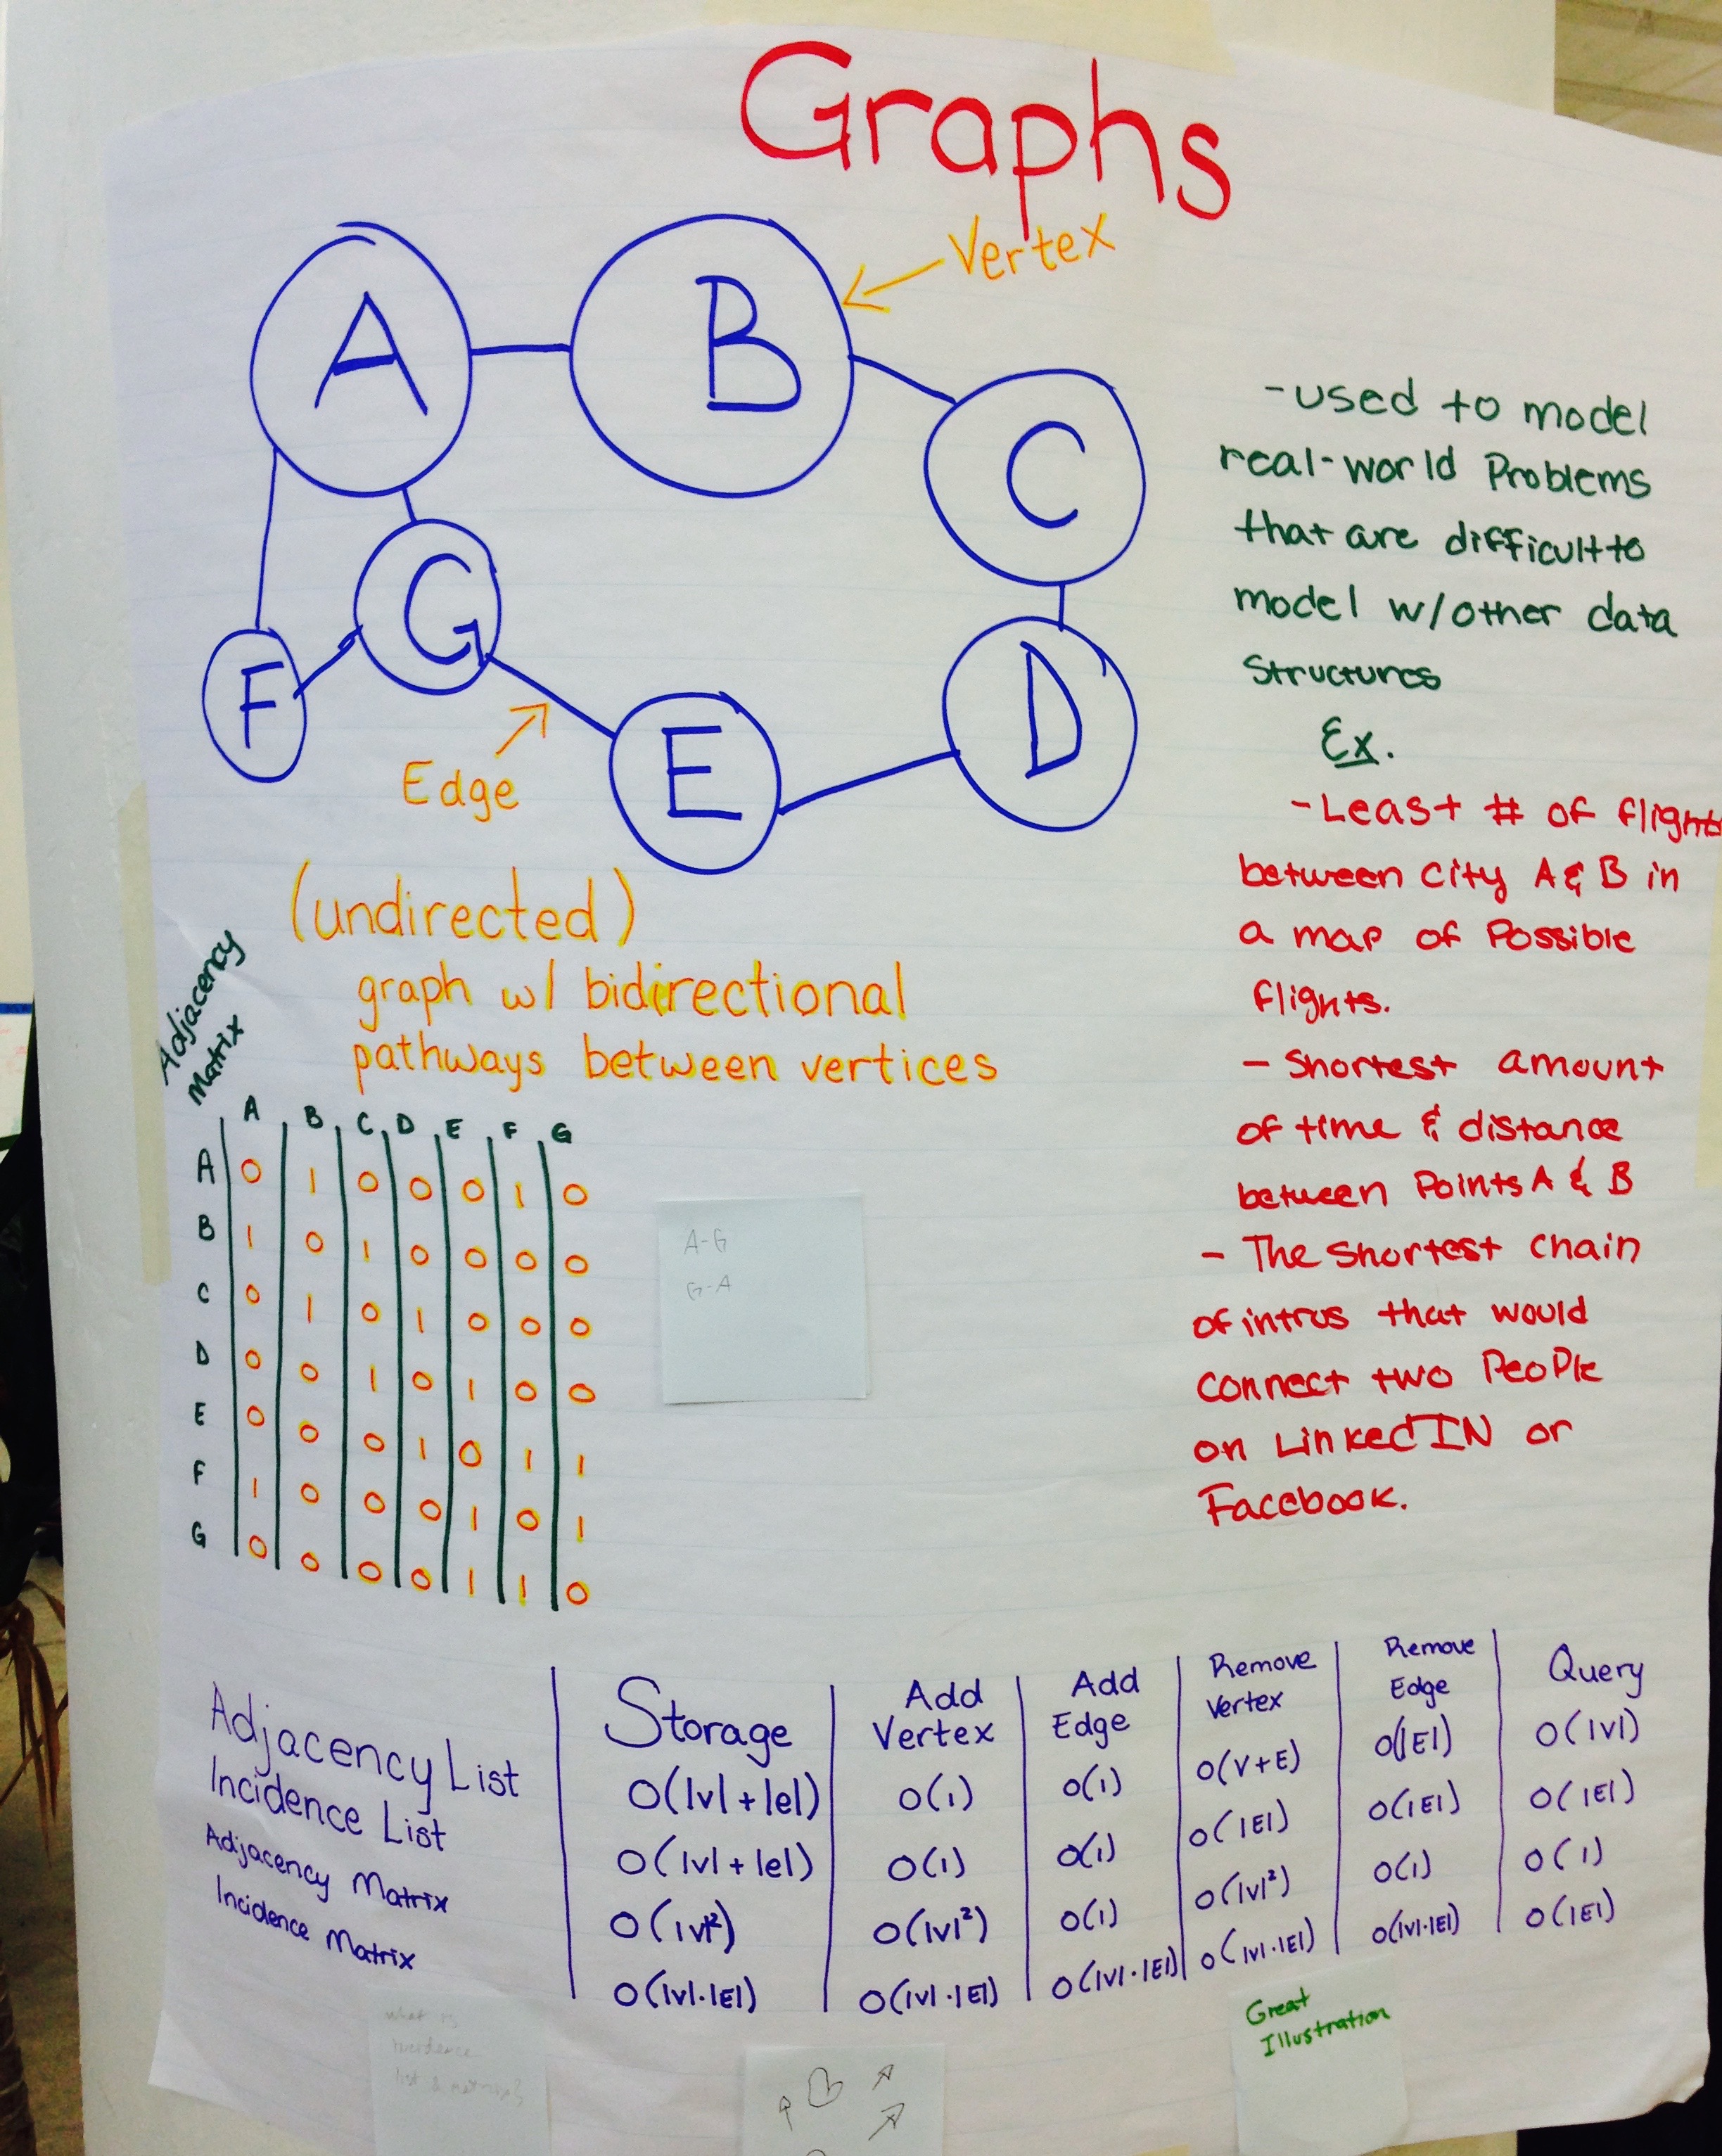 Graphs
A
B
Vertex
C
G
F
D
E
Edge
(undirected)
graph w/ bidirectional
pathways between vertices
-used to model
real-world Problems
that are difficult to
model w/other data
Structures
Ex.
-Least # of flights
between City A & B in
a map of Possible
flights.
- Shortest amount
of time & distance
between Points A & B
- The Shortest chain
of intros that would
connect two People
on LinkedIN or
Facebook.
Adjacency
Matrix
A B C D E F G
A 0 1 0 0 0 1 0
B 1 0 1 0 0 0 0
C 0 1 0 1 0 0 0
D 0 0 1 0 1 0 0
E 0 0 0 1 0 1 1
F 1 0 0 0 1 0 1
G 0 0 0 0 1 1 0
A-G
G-A
Storage Add Vertex Add Edge Remove Vertex Remove Edge Query
Adjacency List O(|v|+|e|) O(1) O(1) O(V+E) O(|E|) O(|v|)
Incidence List O(|v|+|e|) O(1) O(1) O(|E|) O(|E|) O(|E|)
Adjacency Matrix O(|v|²) O(|v|²) O(1) O(|v|²) O(1) O(1)
Incidence Matrix O(|v|·|E|) O(|v|·|E|) O(|v|·|E|) O(|v|·|E|) O(|v|·|E|) O(|E|)
what is
incidence
list & matrix?
Great
Illustration